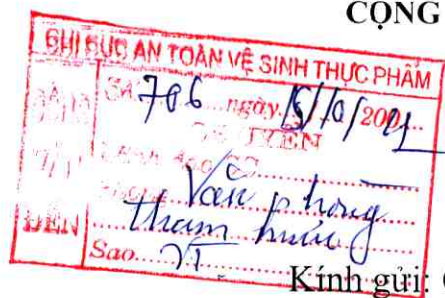 CỘNG
CHI CỤC AN TOÀN VỆ SINH THỰC PHẨM
Số 706 ngày 15/10/2021
CHUYỂN
Văn phòng
ĐẾN
tham mưu
Sao VT
Kính gửi: